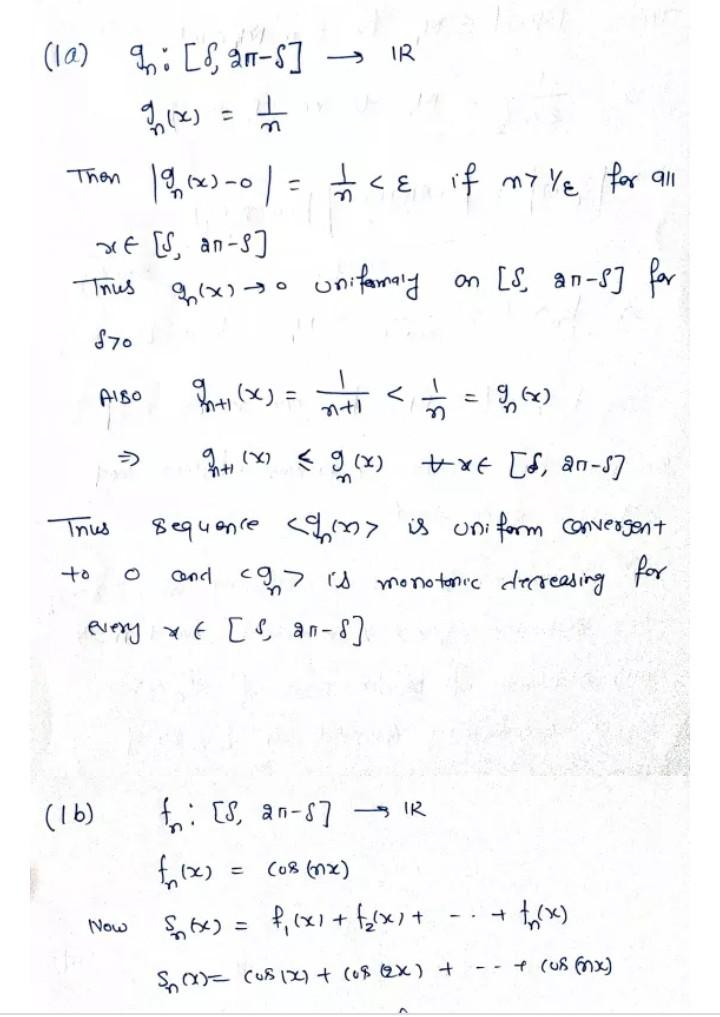 (1a) gₙ : [δ, 2π-δ] → IR
gₙ(x) = 1/n
Then |gₙ(x)-0| = 1/n < ε if n > 1/ε for all
x ∈ [δ, 2π-δ]
Thus gₙ(x) → 0 uniformaly on [δ, 2π-δ] for
δ>0
Also gₙ₊₁(x) = 1/(n+1) < 1/n = gₙ(x)
⇒ gₙ₊₁(x) ≤ gₙ(x) ∀ x ∈ [δ, 2π-δ]
Thus sequence <gₙ(x)> is uniform convergent
to 0 and <gₙ> is monotonic decreasing for
every x ∈ [δ, 2π-δ]
(1b) fₙ : [δ, 2π-δ] → IR
fₙ(x) = cos(nx)
Now Sₙ(x) = f₁(x) + f₂(x) + --- + fₙ(x)
Sₙ(x) = cos(x) + cos(2x) + --- + cos(nx)